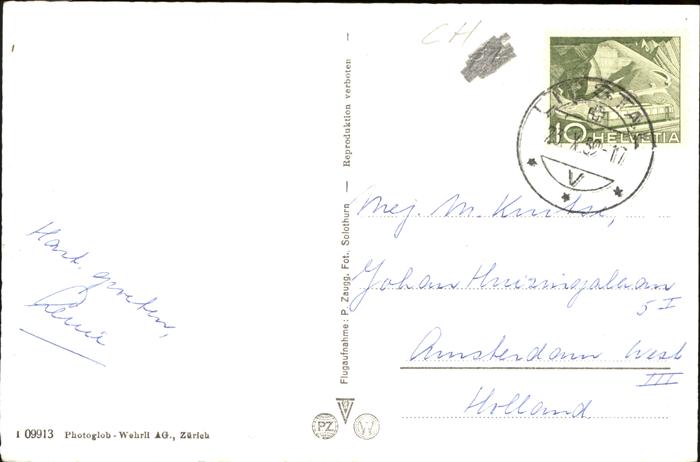 CH
10 HELVETIA
V
Hart. groeten,
Mej. M.
Johan Huizingalaan
5 I
Amsterdam West
III
Holland.
Flugaufnahme: P. Zaugg. Fot. Solothurn — Reproduktion verboten —
PZ W
I 09913 Photoglob - Wehrli AG., Zürich